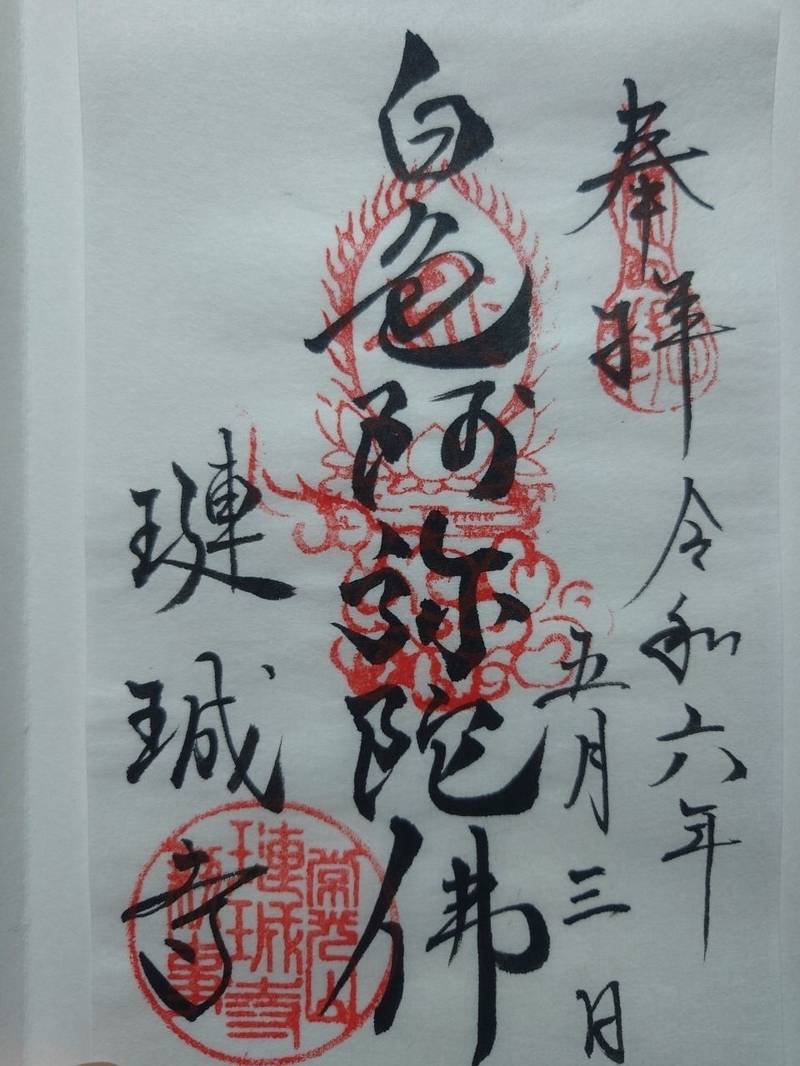 奉拝
令和六年
五月三日
白色阿弥陀佛
璉珹寺
常光山
璉珹寺